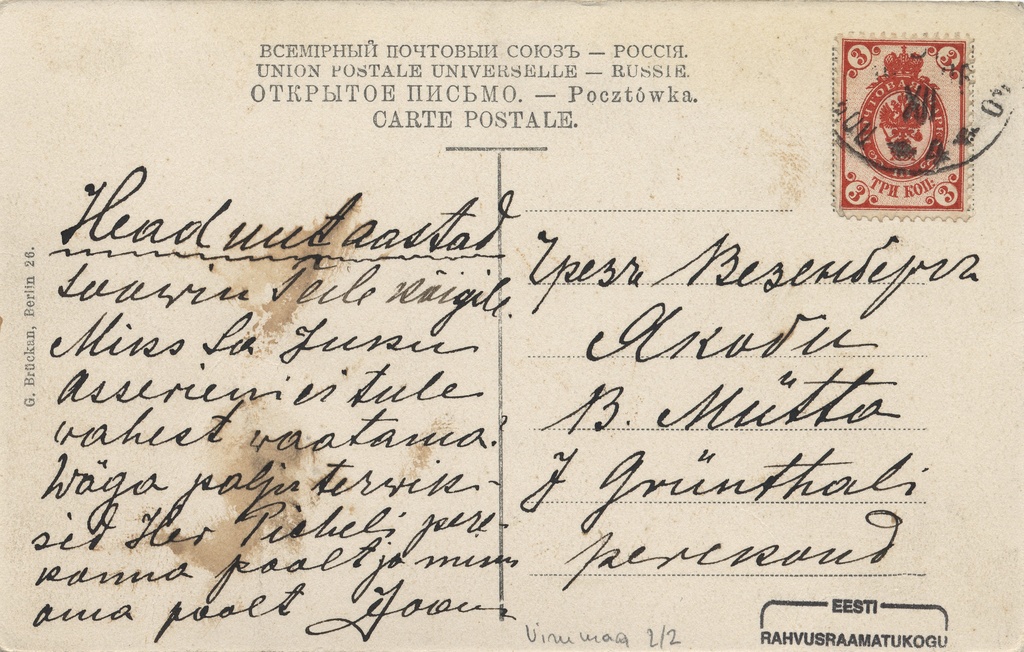 ВСЕМІРНЫЙ ПОЧТОВЫЙ СОЮЗЪ — РОССІЯ.
UNION POSTALE UNIVERSELLE — RUSSIE.
ОТКРЫТОЕ ПИСЬМО. — Pocztówka.
CARTE POSTALE.
3 3
ТРИ КОП.
3 3
XII
04
G. Brückan, Berlin 26.
Head uut aastad
soowin Teile kõigile.
Miks Sa Juku
Asseriem ei tule
wahest waatama.
Wäga palju terwik-
sid Her Picheli pere-
konna poolt ja minu
oma poolt Joan
Чрезъ Везенбергъ
Якоду
B. Mütta
J Grünthali
perekond
Virumaa 2/2
EESTI
RAHVUSRAAMATUKOGU